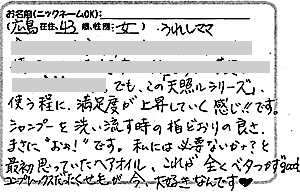 お名前(ニックネームOK):
(広島在住、43歳、性別:女) うれしママ
でも、この天照ルシリーズ、
使う程に、満足度が上昇していく感じ!!です。
シャンプーを洗い流す時の指どおりの良さ、
まさに“おぉ!”です。私には必要ないかな?と
最初思っていたヘアオイル、これが全くベタつかずgood
コンプレックスだったくせ毛が今、大好きなんです♥